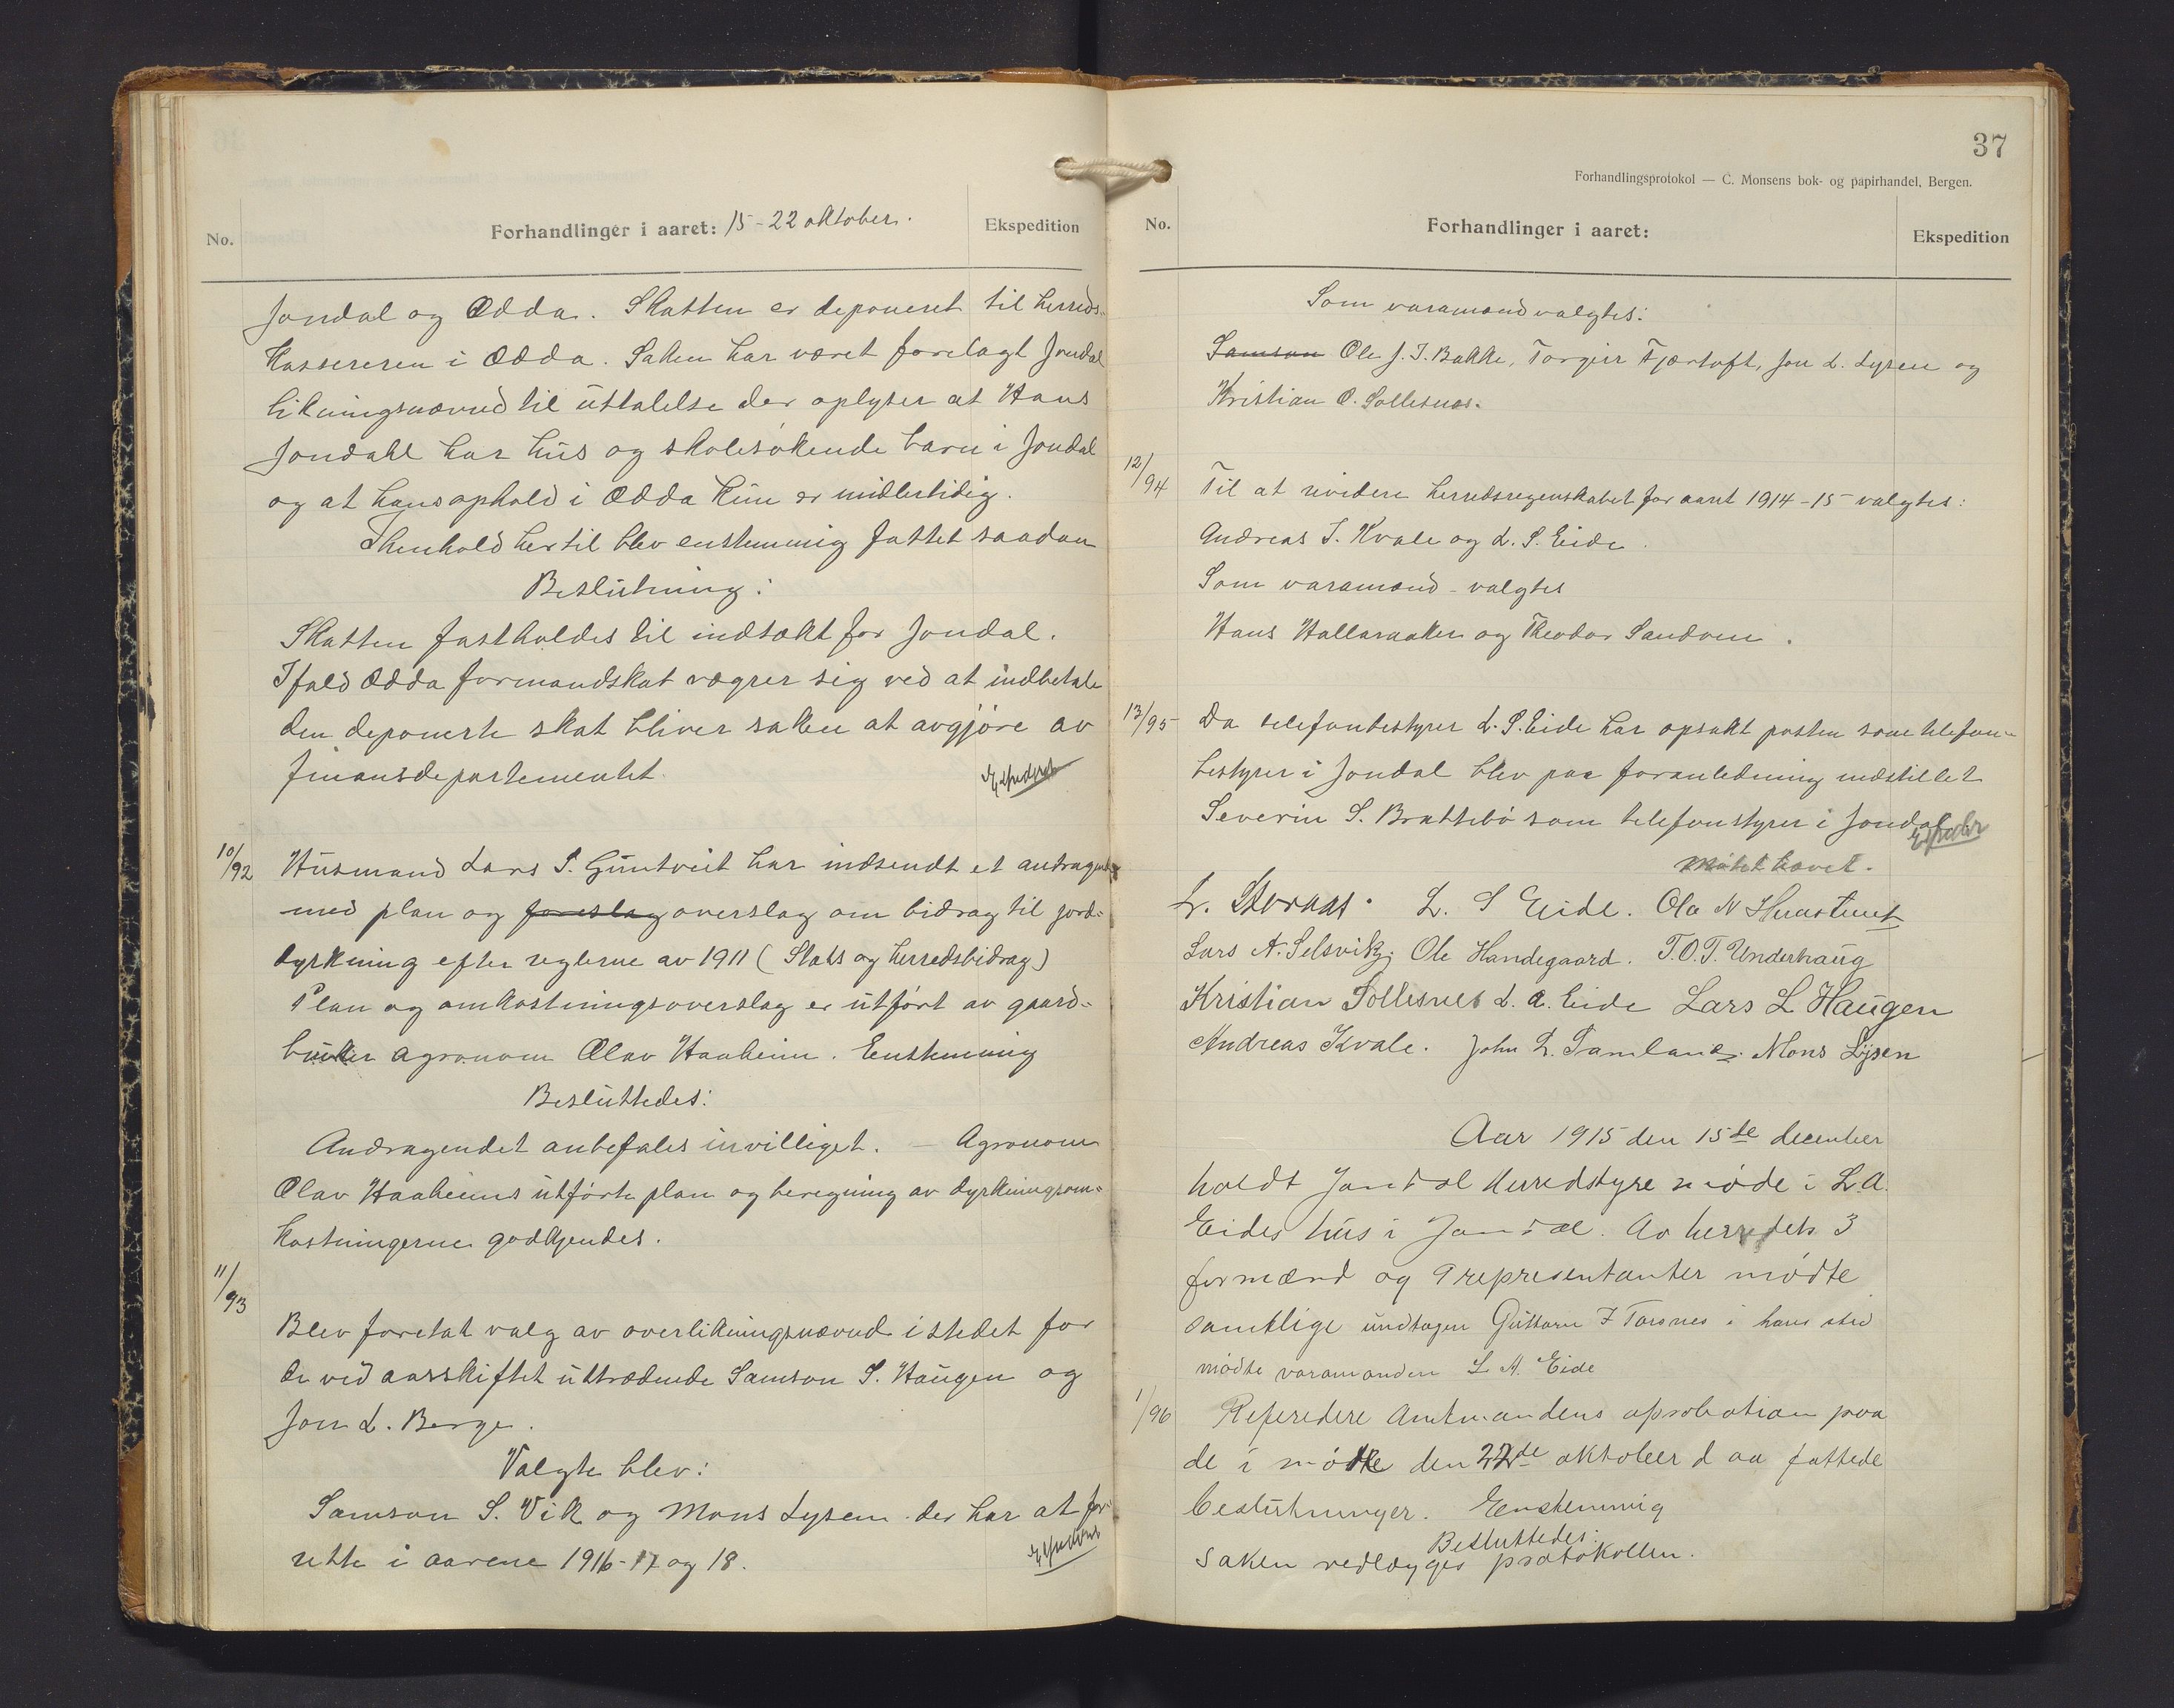 No.
Forhandlinger i aaret: 15-22 oktober.
Ekspedition
Jondal og Odda. Skatten er deponeret til herreds-
kassereren i Odda. Saken har været forelagt Jondal
likningsnævnd til uttalelse der oplyser at Hans
Jondahl har hus og skolesøkende barn i Jondal
og at hans ophold i Odda kun er midlertidig.
I henhold hertil blev enstemmig fattet saadan
Beslutning:
Skatten fastholdes til indtækt for Jondal.
Ifald Odda formandskat vægrer sig ved at indbetale
den deponerte skat bliver saken at avgjøre av
finansdepartementet.
10/92 Husmand Lars S. Guntveit har indsendt et andragende
med plan og foreslag overslag om bidrag til jord-
dyrkning efter reglerne av 1911 (Stats og herredsbidrag)
Plan og omkostningsoverslag er utført av gaard-
bruker agronom Olav Haaheim. Enstemmig
Besluttedes:
Andragendet anbefales invilliget. — Agronom
Olav Haaheims utførte plan og beregning av dyrkningsom-
kostningerne godkjendes.
11/93
Blev foretat valg av overlikningsnævnd istedet for
de ved aarsskiftet uttrædende Samson S. Haugen og
Jon L. Berge.
Valgte blev:
Samson S. Vik og Mons Lysen der har at for-
rette i aarene 1916-17 og 18.
37
Forhandlingsprotokol — C. Monsens bok- og papirhandel, Bergen.
No.
Forhandlinger i aaret:
Ekspedition
Som varamænd valgtes:
Samson Ole J. I. Bakke, Torgeir Fjærtoft, Jon L. Lysen og
Kristian O. Sollesnes.
12/94 Til at revidere herredsregnskabet for aaret 1914-15 valgtes:
Andreas I. Kvale og L. S. Eide.
Som varamænd - valgtes
Hans Hallaraaker og Theodor Sandven.
13/95 Da telefonbestyrer L. S. Eide har opsakt posten som telefon-
bestyrer i Jondal blev paa foranledning indstillet
Severin S. Brattebø som telefonstyrer i Jondal
Møtet hævet.
L. S Eide. Ola N
Lars A. Selsvik. Ole Handegaard. T.O.T. Underhaug
Kristian Sollesnes L. A. Eide Lars L Haugen
Andreas Kvale. John L. Samland. Mons Lysen
Aar 1915 den 15de december
holdt Jondal Herredstyre møde i L.A.
Eides hus i Jondal. Av herredets 3
formænd og 9 repræsentanter mødte
samtlige undtagen Guttorm I Torsnes i hans sted
mødte varamanden L. M. Eide
1/96 Referedere Amtmandens aprobation paa
de i møtte den 22de oktober d aa fattede
beslutninger. Eenstemmig
Besluttedes:
Saken vedlægges protokollen.